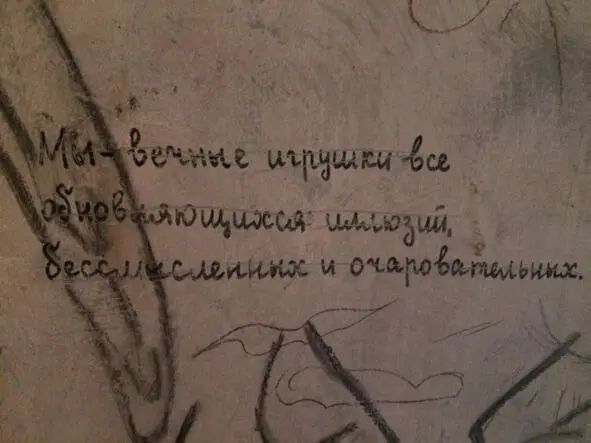 Мы - вечные игрушки все
обновляющихся иллюзий,
бессмысленных и очаровательных.